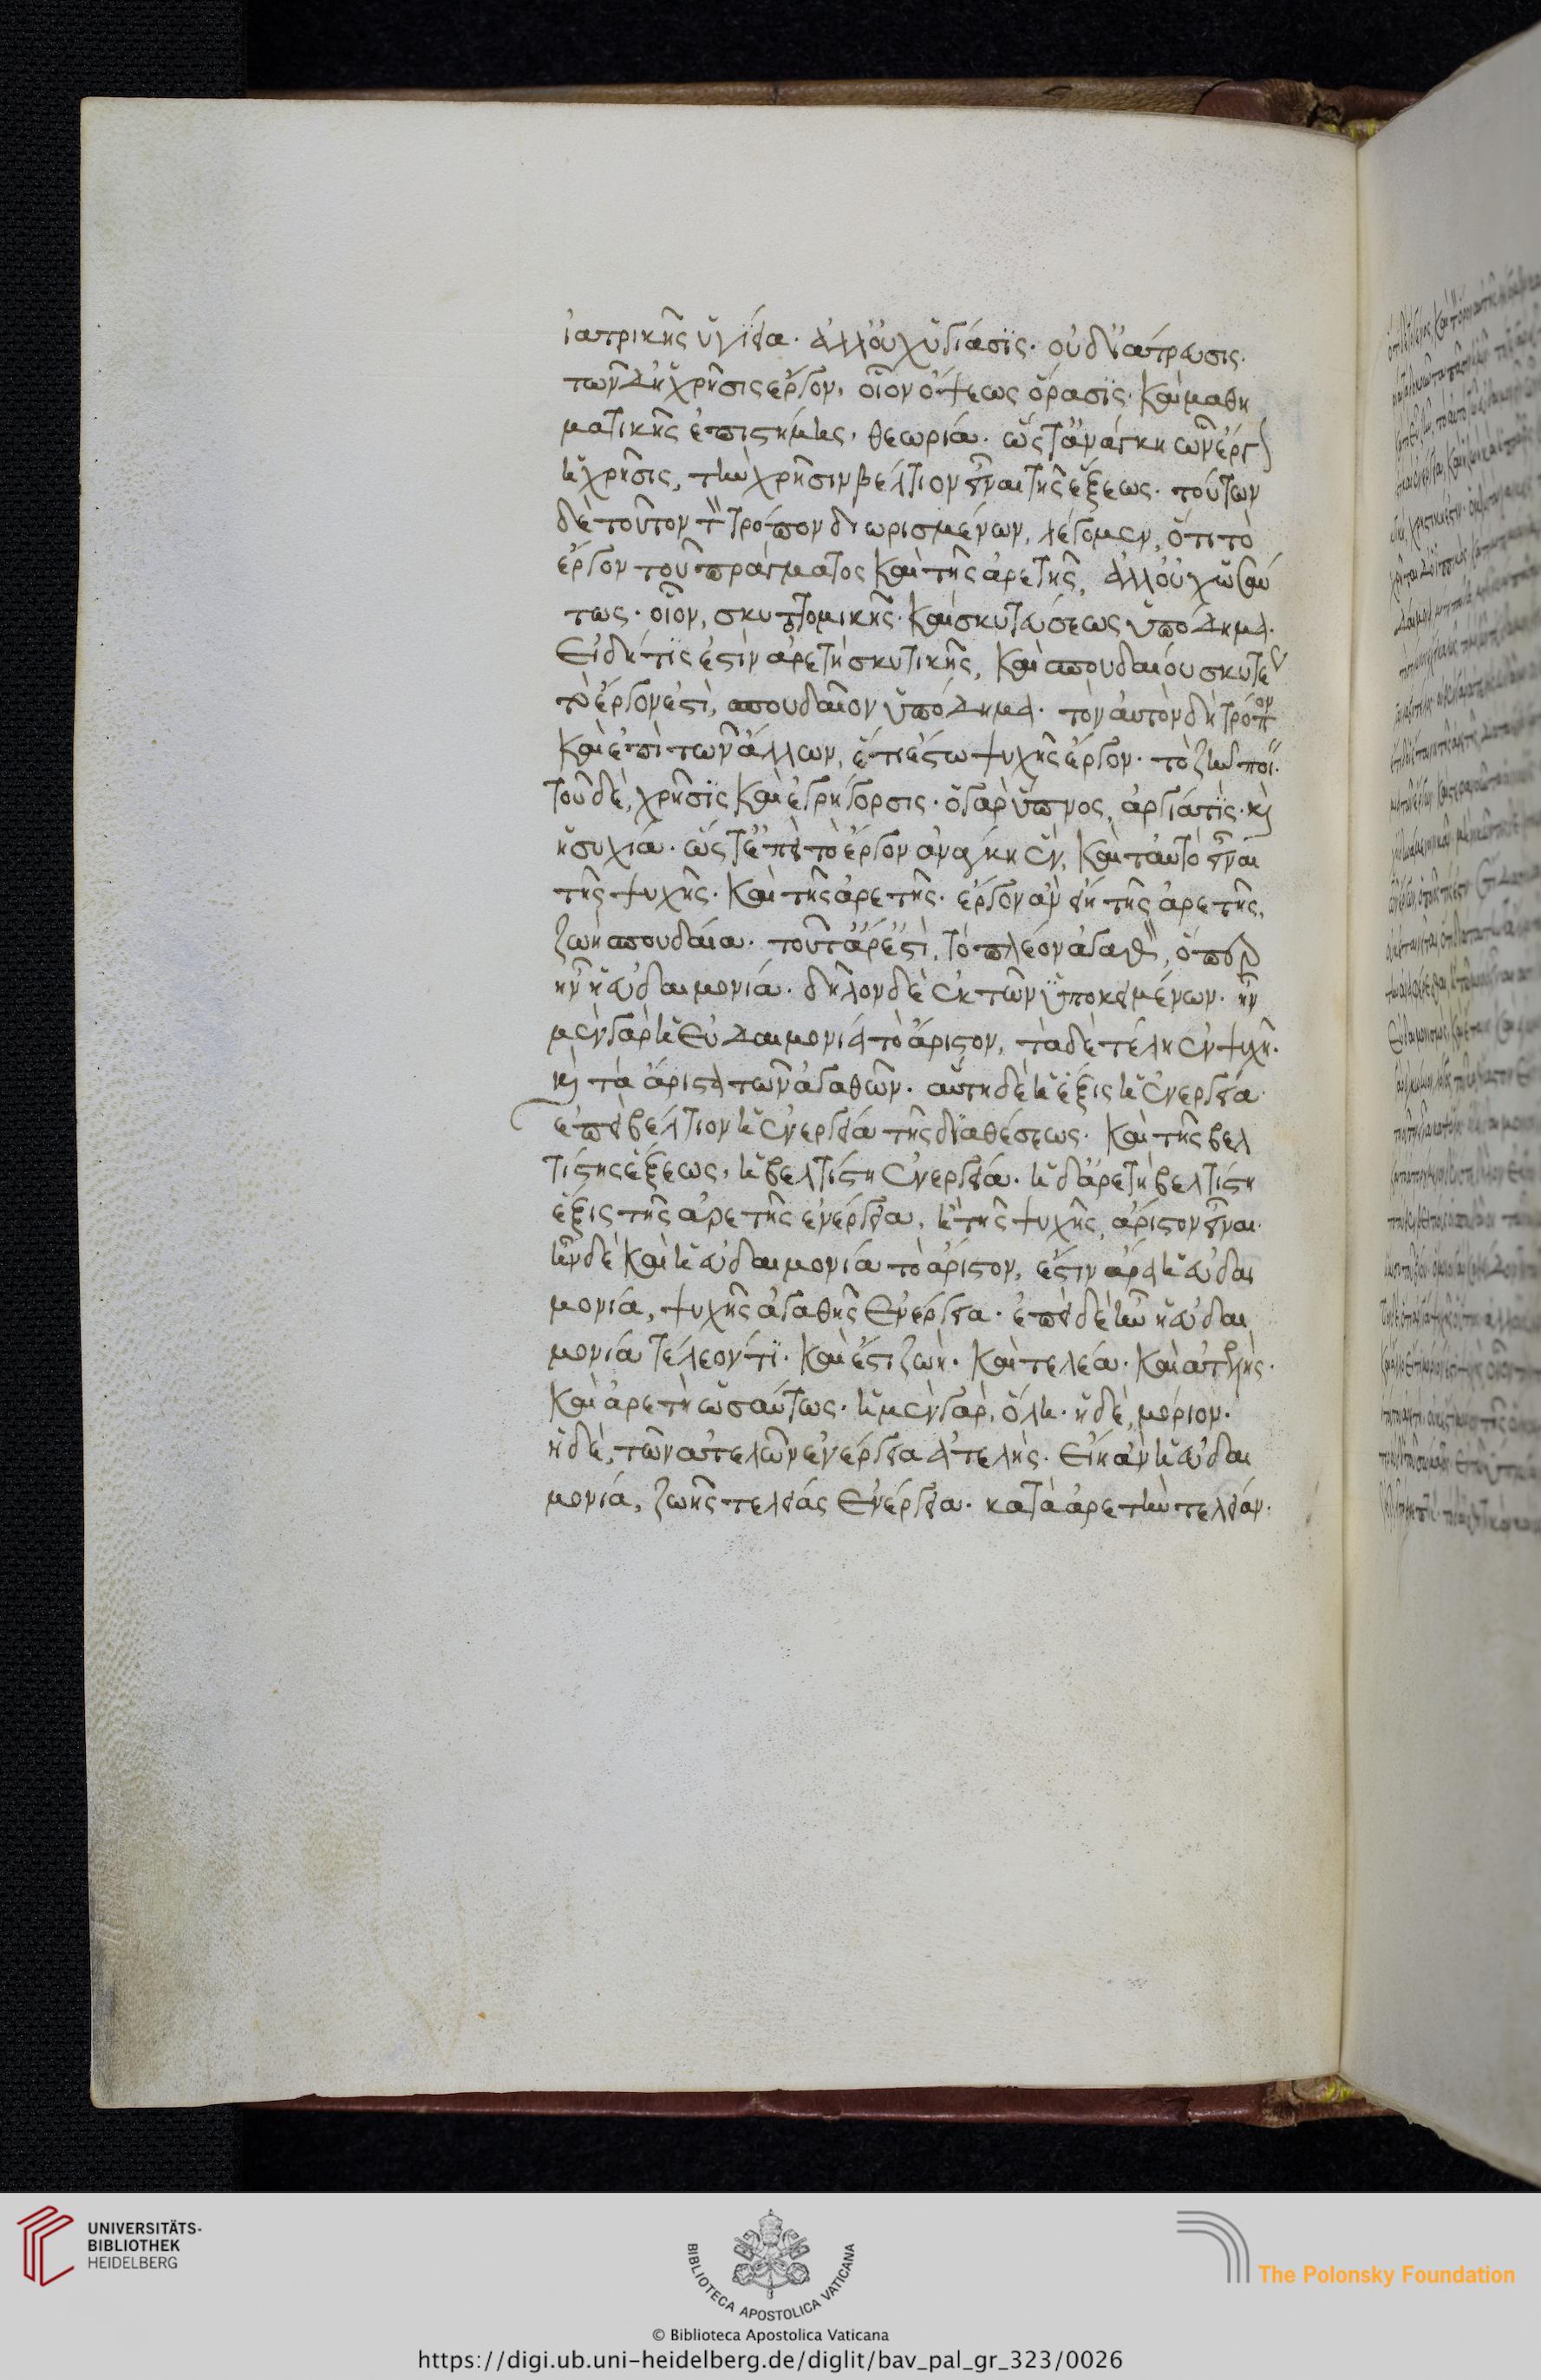 ἰατρικῆς ὑγίεια· ἀλλ' οὐχ ὑγίασϊς· οὐδ' ἰάτρευσις·
τῶν δ' ἡ χρῆσις ἔργον, οἷον ὄψεως ὅρασϊς· καὶ μαθη
ματικῆς ἐπιστήμης, θεωρία· ὥςτ' ἀνάγκη ὧν ἔργ
ἡ χρῆσις, τὴν χρῆσιν βέλτιον εἶναι τῆς ἕξεως· τούτων
δὲ τοῦτον τ τρόπον διωρισμένων, λέγομεν, ὅτι τὸ
ἔργον τοῦ πράγματος καὶ τῆς ἀρετῆς, ἀλλ' οὐχ ὡσαύ
τως· οἷον, σκυτοτομικῆς· καὶ σκυτεύσεως ὑπόδημα·
εἰ δή τϊς ἐστὶν ἀρετὴ σκυτικῆς, καὶ σπουδαίου σκυτε
τὸ ἔργον ἐστὶ, σπουδαῖον ὑπόδημα· τὸν αὐτὸν δὴ τρόπον
καὶ ἐπὶ τῶν ἄλλων, ἔτι ἔστω ψυχῆς ἔργον· τὸ ζῆν ποι·
τοῦ δὲ, χρῆσϊς καὶ ἐγρήγορσις· ὁ γὰρ ὕπνος, ἀργία τϊς· κ
ἡσυχία· ὥςτ' ἐπεὶ τὸ ἔργον ἀνάγκη ἓν, καὶ ταὐτὸ εἶναι
τῆς ψυχῆς· καὶ τῆς ἀρετῆς· ἔργον ἂν εἴη τῆς ἀρετῆς,
ζωὴ σπουδαία· τοῦτ' ἄρ' ἐστὶ, τὸ πλέον ἀγαθ, ὅπερ
ἦν ἡ εὐδαιμονία· δῆλον δὲ ἐκ τῶν ὑποκειμένων· ἦν
μὲν γὰρ ἡ εὐδαιμονία τὸ ἄριστον, τὰ δὲ τέλη ἐν ψυχῆ·
κ τὰ ἄριστα τῶν ἀγαθῶν· αὕτη δὲ ἡ ἕξις ἡ ἐνέργεια·
ἐπεὶ βέλτιον ἡ ἐνέργεια τῆς διαθέσεως· καὶ τῆς βελ
τίστης ἕξεως, ἡ βελτίστη ἐνέργεια· ἡ δ' ἀρετὴ βελτίστη
ἕξις τῆς ἀρετῆς ἐνέργεια, ἡ τῆς ψυχῆς, ἄριστον εἶναι·
ἦν δὲ καὶ ἡ εὐδαιμονία τὸ ἄριστον, ἔστιν ἄρα ἡ εὐδαι
μονία, ψυχῆς ἀγαθῆς ἐνέργεια· ἐπεὶ δὲ ἦν ἡ εὐδαι
μονία τέλεόν τϊ· καὶ ἔστι ζωὴ· καὶ τελέα· καὶ ἀτελής·
καὶ ἀρετὴ ὡσαύτως· ἡ μὲν γὰρ, ὅλη· ἡ δὲ, μόριον·
ἡ δὲ, τῶν ἀτελῶν ἐνέργεια ἀτελὴς· εἴη ἂν ἡ εὐδαι
μονία, ζωῆς τελείας ἐνέργεια· κατὰ ἀρετὴν τελείαν·
UNIVERSITÄTS-
BIBLIOTHEK
HEIDELBERG
BIBLIOTECA APOSTOLICA VATICANA
The Polonsky Foundation
© Biblioteca Apostolica Vaticana
https://digi.ub.uni-heidelberg.de/diglit/bav_pal_gr_323/0026